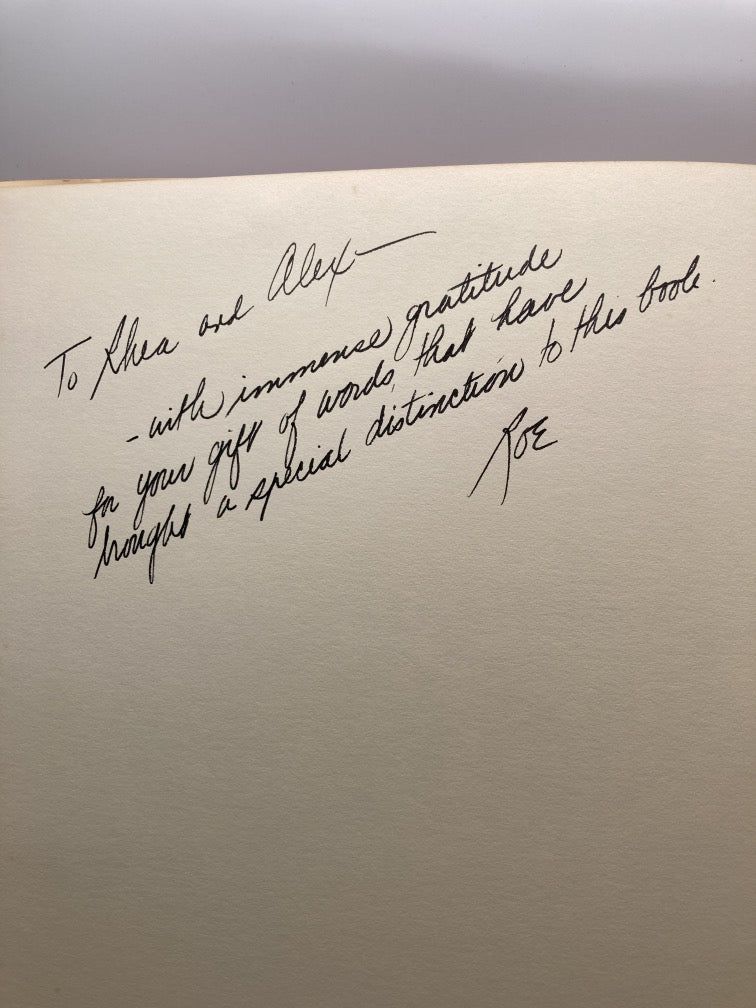 To Rhea and Alex—
- with immense gratitude
for your gift of words that have
brought a special distinction to this book.
Roe